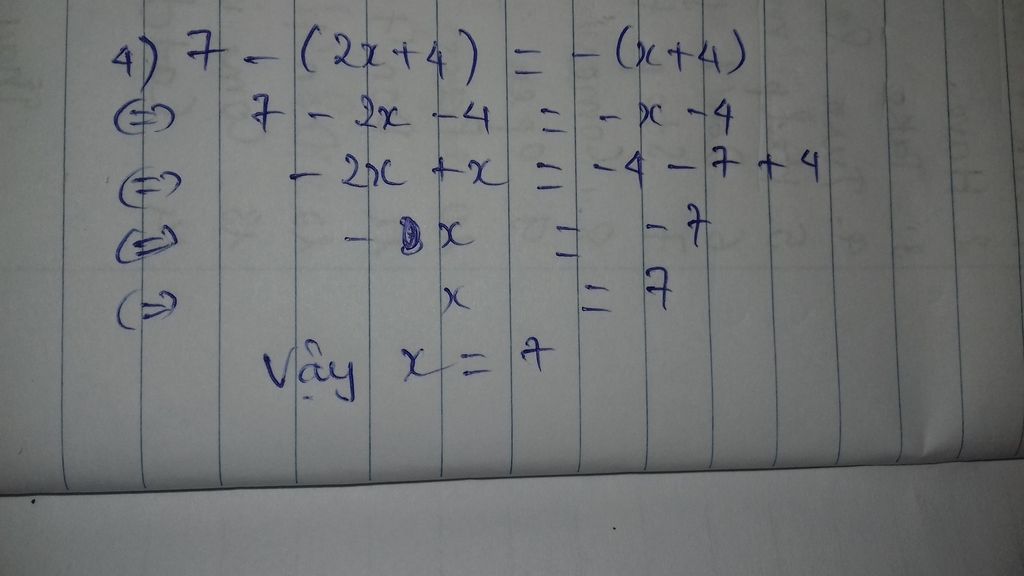 4) 7 - (2x+4) = -(x+4)
(=) 7 - 2x - 4 = - x - 4
(=) - 2x + x = - 4 - 7 + 4
(=) - x = - 7
(=) x = 7
Vậy x = 7